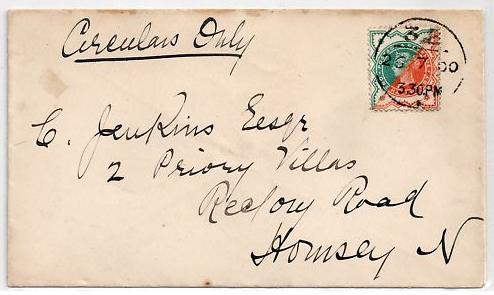 Circulars Only
C. Jenkins Eesqr
2 Priory Villas
Rectory Road
Hornsey N
3.30PM